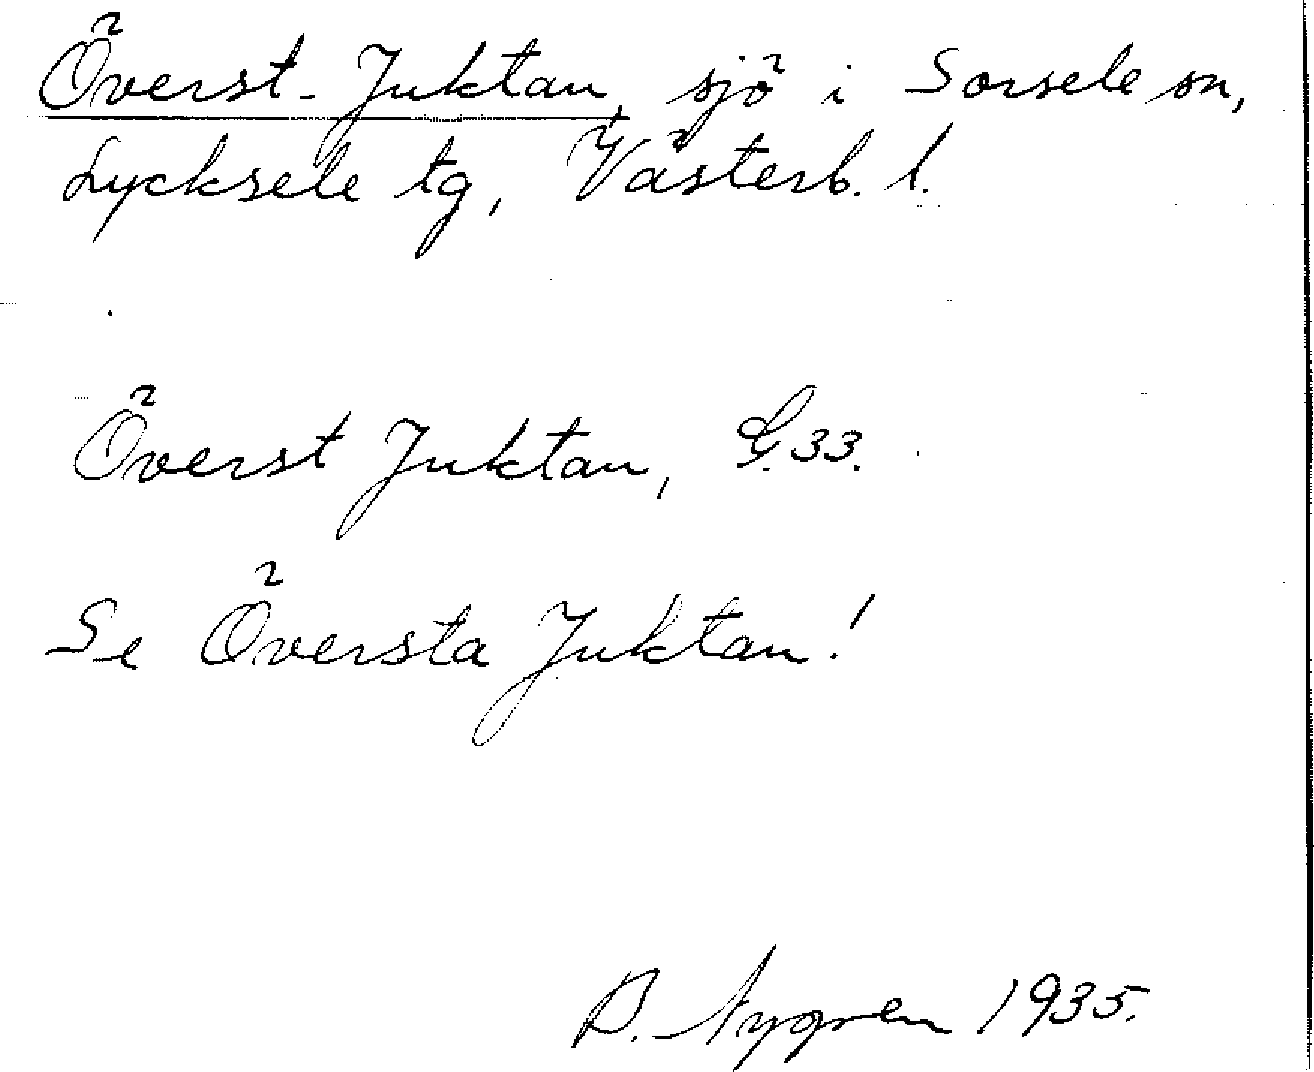 Överst-Juktan, sjö i Sorsele sn,
Lycksele tg, Västerb. l.
Överst Juktan, G. 33.
Se Översta Juktan!
B. Nygren 1935.